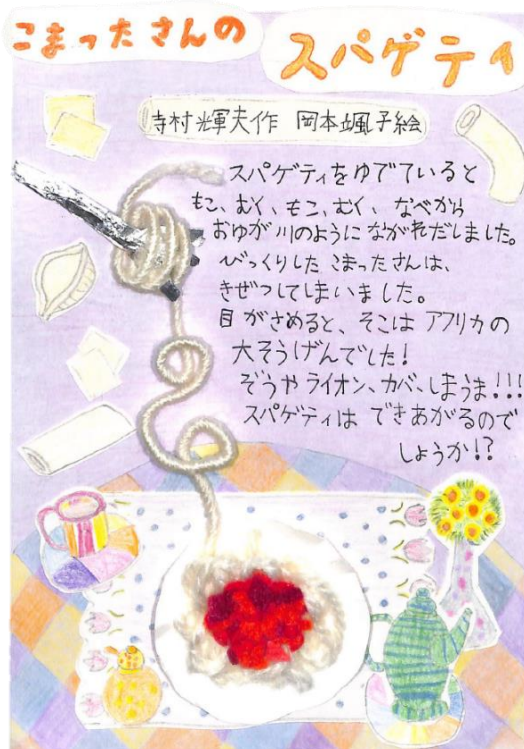 こまったさんの
スパゲティ
寺村輝夫作 岡本颯子絵
スパゲティをゆでていると
もこ、むく、もこ、むく、なべから
おゆが川のようにながれだしました。
びっくりした こまったさんは、
きぜつしてしまいました。
目がさめると、そこは アフリカの
大そうげんでした!
ぞうや ライオン、カバ、しまうま!!!
スパゲティは できあがるので
しょうか!?